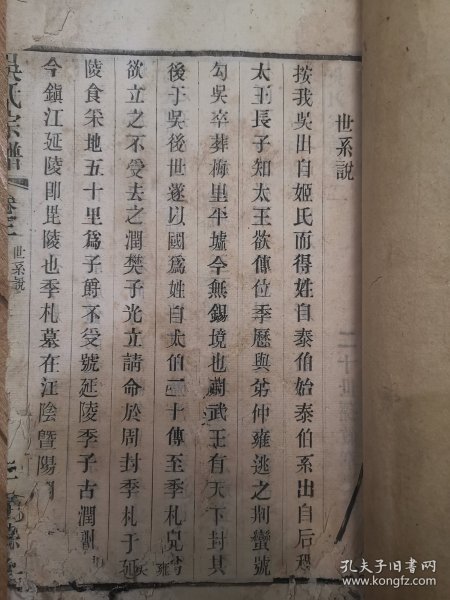 世系説
按我吳出自姬氏而得姓自泰伯始泰伯系出自后稷
太王長子知太王欲傳位季歷與弟仲雍逃之荆蠻號
勾吳卒葬梅里平墟今無錫境也周武王有天下封其
後于吳後世遂以國爲姓自太伯二十傳至季札兄
欲立之不受去之潤樊子光立請命於周封季札于延
陵食采地五十里爲子爵不受號延陵季子古潤州
今鎮江延陵即毘陵也季札墓在江陰暨陽
吳氏宗譜
卷三
世系説
孔夫子旧书网
www.kongfz.com